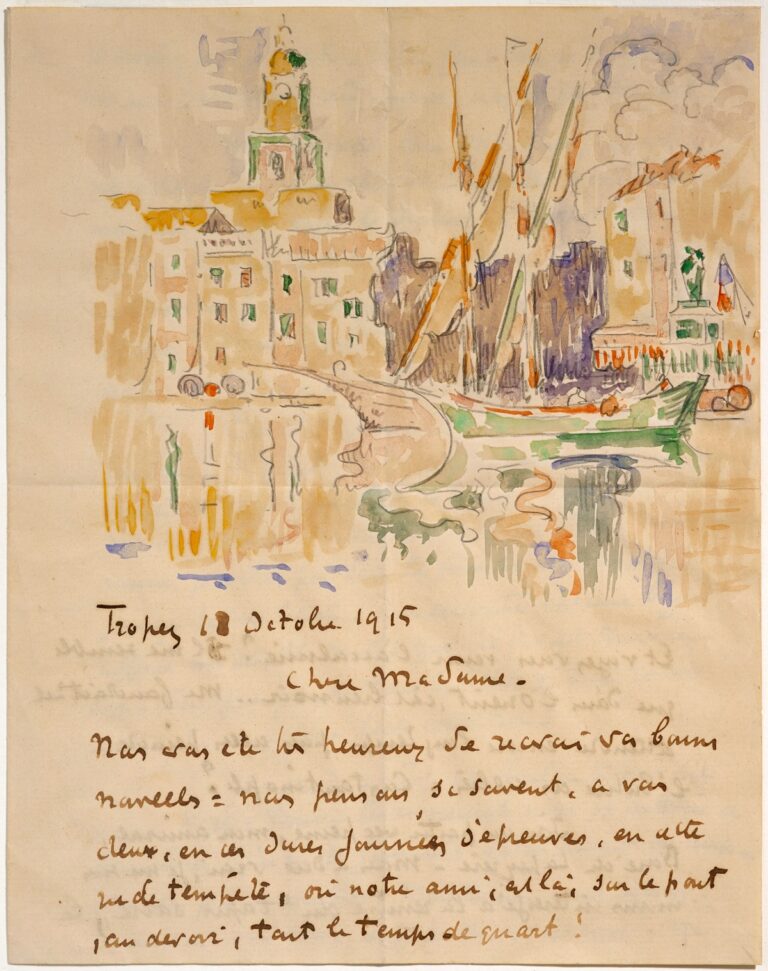 Tropez 18 Octobre 1915
Chere Madame -
Nous avons ete très heureux de recevoir vos bonnes
nouvelles = nous pensons si souvent, a vous
deux, en ces dures journées d'épreuves, en cette
rude tempête, où notre ami, est là, sur le pont
, au devoir, tout le temps de quart !